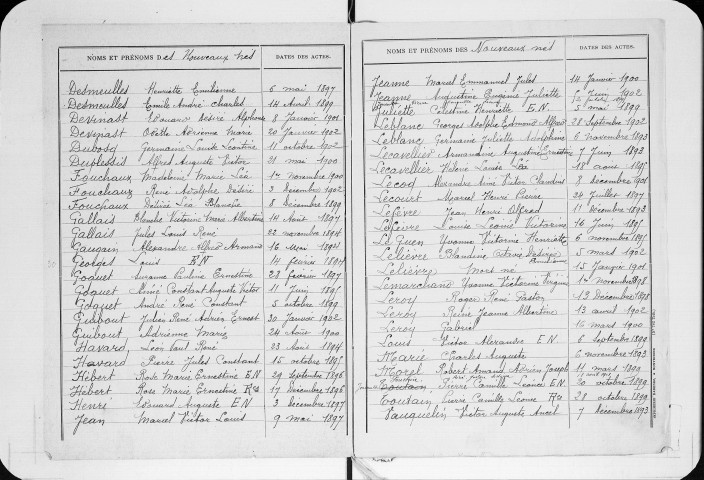 NOMS ET PRÉNOMS Des Nouveaux nés DATES DES ACTES.
Desmeulles Henriette Emilienne 6 mai 1897
Desmeulles Emile André Charles 14 Avril 1899
Devinast Edouard Désiré Alphonse 8 Janvier 1901
Devinast Odette Adrienne Marie 20 Janvier 1902
Dubosq Germaine Louise Léontine 11 octobre 1902
Duplessis Alfred Auguste Victor 21 mai 1900
Fouchaux Madeleine Marie Léa 14 novembre 1900
Foucheaux René Adolphe Désiré 3 Décembre 1902
Fouchaux Désirée Léa Blanche 8 Décembre 1899
Gallais Blanche Victorine Marie Albertine 14 Août 1897
Gallais Jules Louis René 22 novembre 1894
Gaugain Alexandre Alfred Armand 16 Mai 1894
Georges Louis E N 14 février
Goguet Suzanne Pauline Ernestine 23 février 1897
Goguet Aimée Constant Auguste Victor 11 Juin
Goguet André René Constant 5 octobre 1899
Guibout Julien René Adrien Ernest 30 Janvier 1902
Guibout Adrienne Marie 24 Août 1900
Havard René 23 Août 1894
Havard Pierre Jules Constant 15 octobre
Hébert Rose Marie Ernestine E N 29 Septembre 1896
Hébert Rose Marie Ernestine Rce 17 Décembre 1896
Henri Edouard Auguste E.N 3 décembre 1897
Jean Marcel Victor Louis 9 mai 1897
NOMS ET PRÉNOMS DES Nouveaux nés DATES DES ACTES.
Jeanne Marcel Emmanuel Jules 14 Janvier 1900
Jeanne Augustine Eugénie Juliette Juin 1902
Juliette Célestine Henriette E.N. 5 mai 1899
Leblanc Georges Adolphe Edmond Alfred 28 Septembre 1902
Leblanc Germaine Juliette Adolphine 6 novembre 1893
Lecavellier Armandine Augustine Ernestine 7 Juin 1893
Lecavellier Hélène Louise Léa 18 août
Lecoq Alexandre Aimé Victor 8 décembre 1901
Lecourt Marcel Henri Pierre 24 Juillet 1897
Lefèvre Jean Henri Alfred 11 Décembre 1893
Lefèvre Louise Léonie Victorine 16 Juin
Le Guen Yvonne Victorine Henriette 6 novembre
Lelièvre Blandine 5 mars 1902
Lelièvre Mort né 15 Janvier 1901
Lemarchand Yvonne Victorine Virginie 14 novembre 1898
Leroy Roger René Gaston 13 Décembre 1898
Leroy Reine Jeanne Albertine 13 avril 1902
Leroy Gabriel 16 mars 1900
Louis Victor Alexandre E.N 6 Septembre 1899
Marie Charles Auguste 6 novembre 1893
Morel Robert Armand Adrien Joseph 11 mars 1900
Toutain Pierre Camille Léonce E N 20 octobre 1899
Toutain Pierre Camille Léonce Rce 28 octobre 1899
Vauquelin Victor Auguste 7 décembre 1893